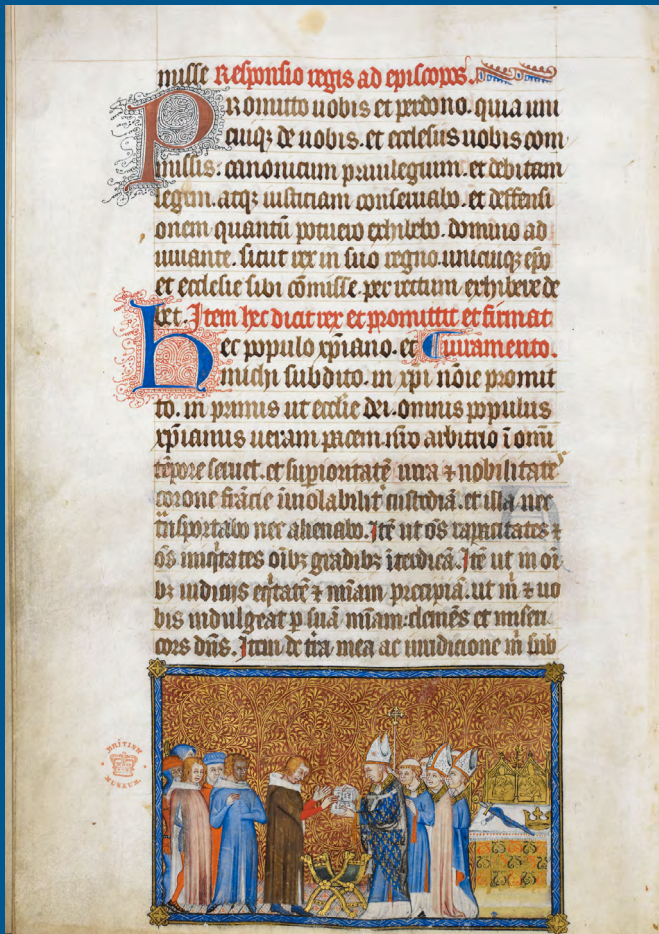 misse Responsio regis ad episcopos.
Promitto uobis et perdono. quia uni
cuiq; de uobis. et ecclesiis uobis com
missis. canonicum priuilegium. et debitam
legem. atq; iusticiam conseruabo. et deffensi
onem quantū potuero exhibebo. domino ad
iuuante. sicut rex in suo regno. unicuiq; ep̄o
et ecclesie sibi cōmisse. per rectum exhibere de
bet. Item hec dicit rex et promittit et firmat
hec populo xp̄iano. et iuramento.
michi subdito. in xp̄i nōie promit
to. in primis ut ecclīe dei. omnis populus
xp̄ianus ueram pacem. nr̄o arbitrio ī omi
tēpore seruet. et supioritatē iura & nobilitate
corone frācie īuiolabilit̄ custodiā. et illa nec
tn̄sportabo nec alienabo. Itē ut oēs rapacitates &
oēs iniq̄tates oībꝫ gradibꝫ īterdicā. Itē ut in oī
bꝫ iudiciis eq̄tatē & mīam precipiā. ut m̄ & uo
bis indulgeat p suā mīam. clemēs et miseri
cors dn̄s. Item de t̄ra mea ac iuridicione m̄ sub
BRITISH
MUSEUM